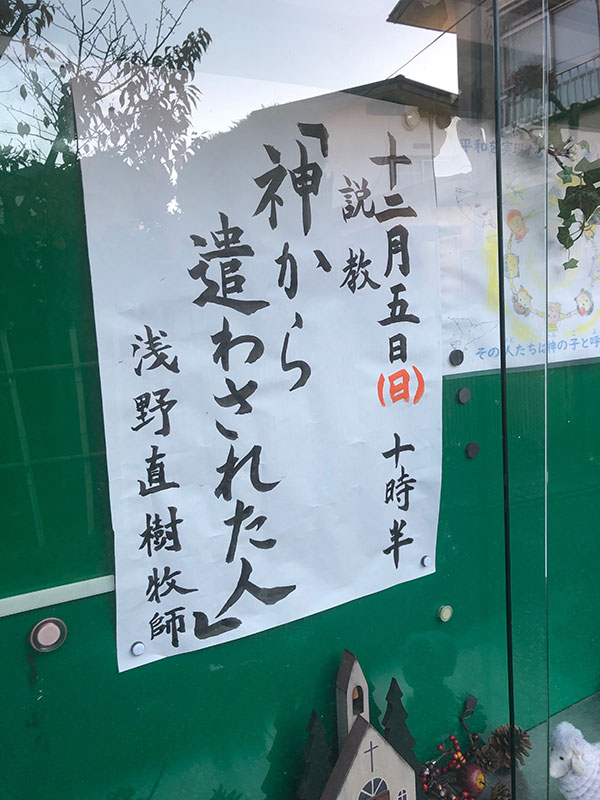 十二月五日(日) 十時半
説教
「神から
遣わされた人」
浅野直樹牧師
平和を
その人たちは神の子と呼